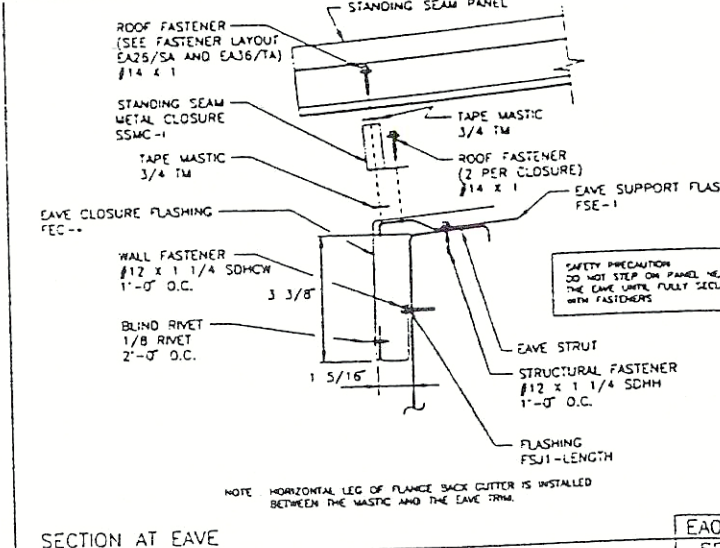 STANDING SEAM PANEL
ROOF FASTENER
(SEE FASTENER LAYOUT
EA25/SA AND EA36/TA)
#14 X 1
STANDING SEAM
METAL CLOSURE
SSMC-1
TAPE MASTIC
3/4 TM
TAPE MASTIC
3/4 TM
ROOF FASTENER
(2 PER CLOSURE)
#14 X 1
EAVE SUPPORT FLAS
FSE-1
EAVE CLOSURE FLASHING
FEC-
WALL FASTENER
#12 X 1 1/4 SDHCW
1'-0" O.C.
3 3/8
BLIND RIVET
1/8 RIVET
2'-0" O.C.
1 5/16
SAFETY PRECAUTION
DO NOT STEP ON PANEL NE
THE EAVE UNTIL FULLY SECU
WITH FASTENERS
EAVE STRUT
STRUCTURAL FASTENER
#12 X 1 1/4 SDHH
1'-0" O.C.
FLASHING
FSJ1-LENGTH
NOTE HORIZONTAL LEG OF FLANGE BACK GUTTER IS INSTALLED
BETWEEN THE MASTIC AND THE EAVE TRIM.
SECTION AT EAVE